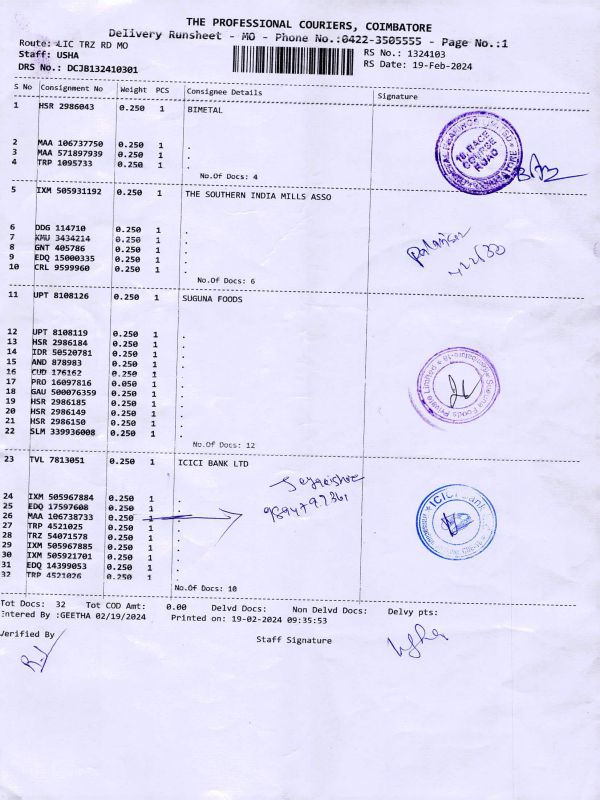 THE PROFESSIONAL COURIERS, COIMBATORE
Delivery Runsheet - MO - Phone No.:0422-3505555 - Page No.:1
Route: LIC TRZ RD MO
RS No.: 1324103
Staff: USHA
RS Date: 19-Feb-2024
DRS No.: DCJB132410301
S No Consignment No Weight PCS Consignee Details Signature
1 HSR 2986043 0.250 1 BIMETAL
2 MAA 106737750 0.250 1 .
3 MAA 571897939 0.250 1 .
4 TRP 1095733 0.250 1 .
No.Of Docs: 4
18 RACE COURSE ROAD
5 IXM 505931192 0.250 1 THE SOUTHERN INDIA MILLS ASSO
6 DDG 114710 0.250 1 .
7 KMU 3434214 0.250 1 .
8 GNT 405786 0.250 1 .
9 EDQ 15000335 0.250 1 .
10 CRL 9599960 0.250 1 .
No.Of Docs: 6
11 UPT 8108126 0.250 1 SUGUNA FOODS
12 UPT 8108119 0.250 1 .
13 HSR 2986184 0.250 1 .
14 IDR 50520781 0.250 1 .
15 AND 878983 0.250 1 .
16 CUD 176162 0.250 1 .
17 PRO 16097816 0.050 1 .
18 GAU 500076359 0.250 1 .
19 HSR 2986185 0.250 1 .
20 HSR 2986149 0.250 1 .
21 HSR 2986150 0.250 1 .
22 SLM 339936008 0.250 1 .
No.Of Docs: 12
Suguna Foods Private Limited * Coimbatore-18 *
23 TVL 7813051 0.250 1 ICICI BANK LTD
24 IXM 505967884 0.250 1 .
25 EDQ 17597608 0.250 1 .
26 MAA 106738733 0.250 1 .
27 TRP 4521025 0.250 1 .
28 TRZ 54071578 0.250 1 .
29 IXM 505967885 0.250 1 .
30 IXM 505921701 0.250 1 .
31 EDQ 14399053 0.250 1 .
32 TRP 4521026 0.250 1 .
No.Of Docs: 10
ICICI Bank
Tot Docs: 32 Tot COD Amt: 0.00 Delvd Docs: Non Delvd Docs: Delvy pts:
Entered By :GEETHA 02/19/2024 Printed on: 19-02-2024 09:35:53
Verified By
Staff Signature